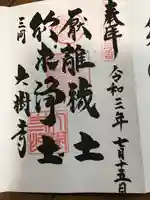 奉拝
令和三年七月十五日
厭離穢土
欣求浄土
三河 大樹寺